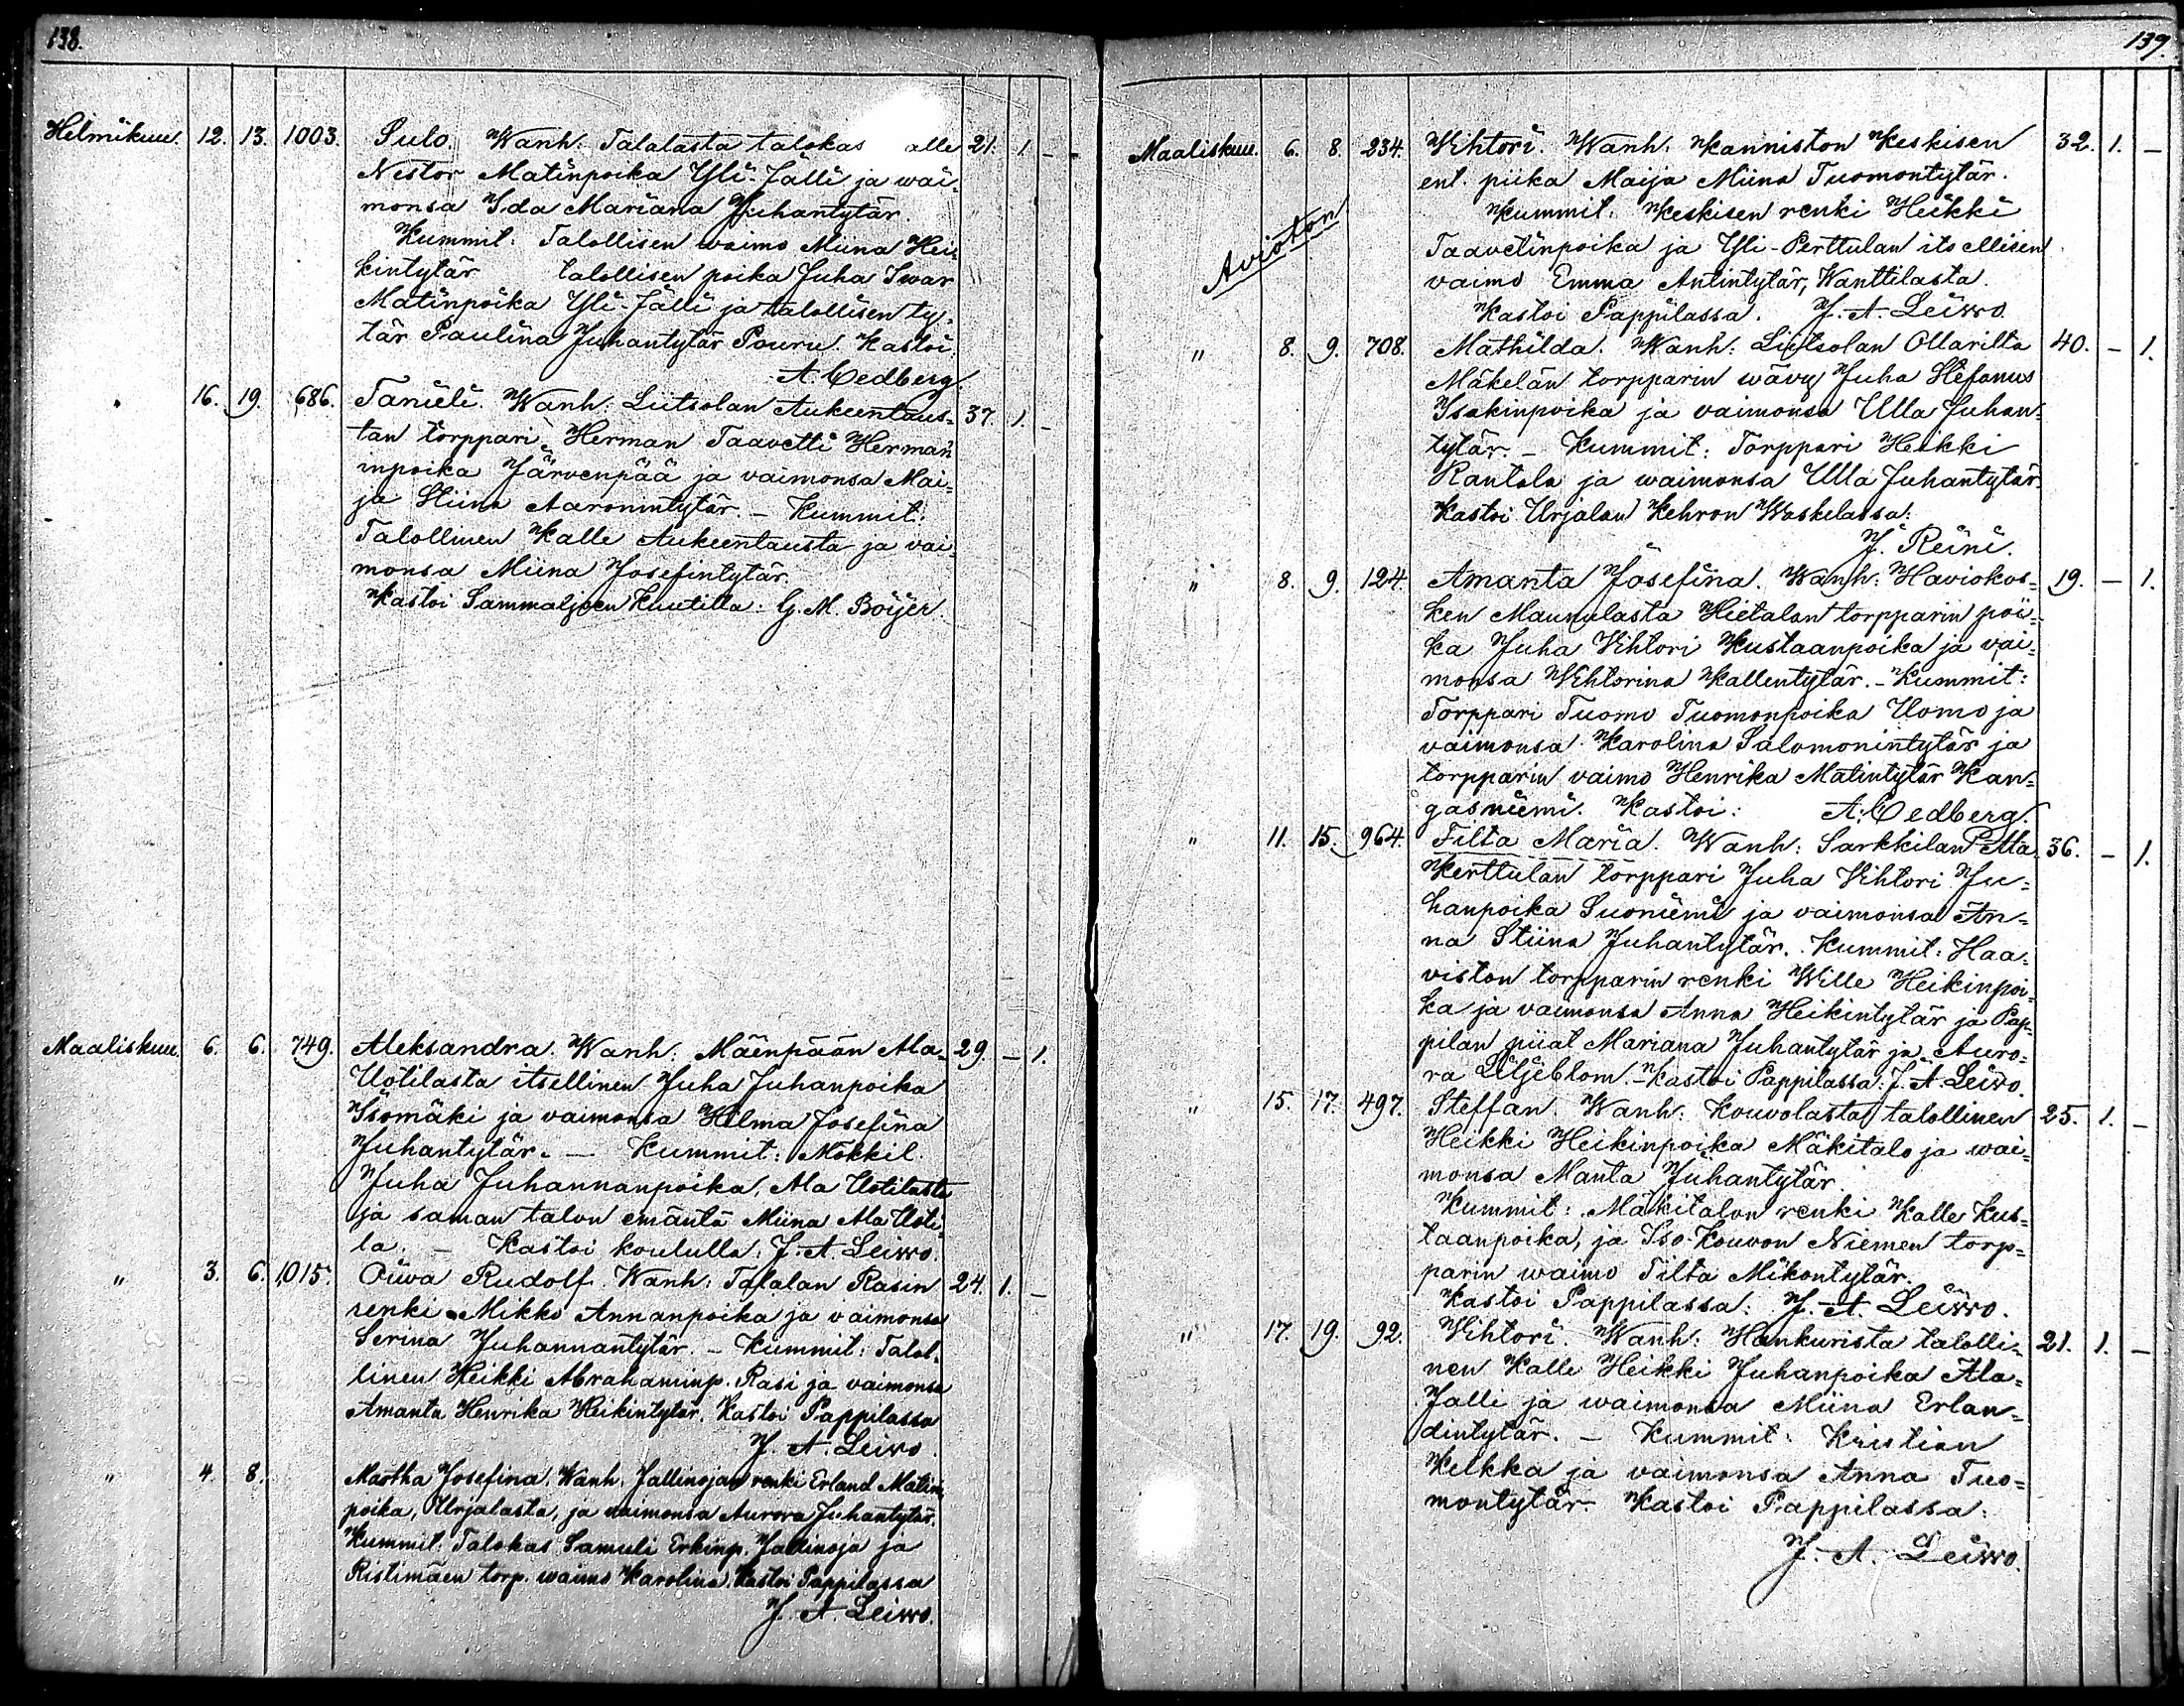 138.
Helmikuu. 12. 13. 1003. Sulo. Wanh: Talalasta talokas alle 21. 1. -
Nestor Matinpoika Yli-Jälli ja wai-
monsa Ida Mariana Juhantytär.
Kummit: Talollisen waimo Miina Hei-
kintytär talollisen poika Juha Iwar
Matinpoika Yli-Jälli ja talollisen ty-
tär Paulina Juhantytär Pouru. Kastoi:
A. Cedberg
" 16. 19. 686. Tanieli. Wanh: Liitsolan Aukeentaus- 37. 1. -
tan torppari Herman Taavetti Herman-
inpoika Järvenpää ja vaimonsa Mai-
ja Stiina Aaronintytär. - Kummit:
Talollinen Kalle Aukeentausta ja vai-
monsa Miina Josefintytär.
Kastoi Sammaljoen Kuutilla: G. M. Böijer.
Maaliskuu. 6. 6. 749. Aleksandra. Wanh: Mäenpään Ala- 29. - 1.
Uotilasta itsellinen Juha Juhanpoika
Isomäki ja vaimonsa Hilma Josefina
Juhantytär. - Kummit: Mökkil.
Juha Juhannanpoika, Ala Uotilasta
ja saman talon emäntä Miina Ala Uoti-
la. - Kastoi koululla: J. A. Leiwo.
" 3. 6. 1,015. Oiwa Rudolf. Wanh: Talalan Rasin 24. 1. -
renki Mikko Annanpoika ja vaimonsa
Serina Juhannantytär. - Kummit: Talol-
linen Heikki Abrahaminp. Rasi ja vaimonsa
Amanta Henrika Heikintytär. Kastoi Pappilassa
J. A. Leiwo.
" 4. 8. Martha Josefina. Wanh. Jallinojan renki Erland Matin-
poika, Urjalasta, ja vaimonsa Aurora Juhantytär.
Kummit: Talokas Samuli Erkinp. Jallinoja ja
Ristimäen torp. waimo Karolina. Kastoi Pappilassa
J. A. Leiwo.
139.
Maaliskuu. 6. 8. 234. Vihtori. Wanh: Kanniston Keskisen 32. 1. -
ent. piika Maija Miina Tuomontytär.
Kummit: Keskisen renki Heikki
Avioton
Taavetinpoika ja Yli-Perttulan itsellisen
vaimo Emma Antintytär, Wanttilasta.
Kastoi Pappilassa. J. A. Leiwo.
" 8. 9. 708. Mathilda. Wanh: Liitsolan Ollarilta 40. - 1.
Mäkelän torpparin wävy Juha Stefanus
Isakinpoika ja vaimonsa Ulla Juhan-
tytär. - Kummit: Torppari Heikki
Rantala ja waimonsa Ulla Juhantytär.
Kastoi Urjalan Kehron Waskelassa:
J. Reini.
" 8. 9. 124. Amanta Josefina. Wanh: Haviokos- 19. - 1.
ken Maunulasta Hietalan torpparin poi-
ka Juha Vihtori Kustaanpoika ja vai-
monsa Vihtorina Kallentytär. - Kummit:
Torppari Tuomo Tuomonpoika Uomo ja
vaimonsa Karolina Salomonintytär ja
torpparin vaimo Henrika Matintytär Kan-
gasniemi. Kastoi: A. Cedberg.
" 11. 15. 964. Tilta Maria. Wanh: Sarkkilan Ala 36. - 1.
Kerttulan torppari Juha Vihtori Ju-
hanpoika Suoniemi ja vaimonsa An-
na Stiina Juhantytär. Kummit: Haa-
viston torpparin renki Wille Heikinpoi-
ka ja vaimonsa Anna Heikintytär ja Pap-
pilan piiat Mariana Juhantytär ja Auro-
ra Liljeblom. - Kastoi Pappilassa: J. A. Leiwo.
" 15. 17. 497. Steffan. Wanh: Kouvolasta talollinen 25. 1. -
Heikki Heikinpoika Mäkitalo ja wai-
monsa Manta Juhantytär.
Kummit: Mäkitalon renki Kalle Kus-
taanpoika, ja Iso-Kouvon Niemen torp-
parin waimo Tilta Mikontytär.
Kastoi Pappilassa: J. A. Leiwo.
" 17. 19. 92. Vihtori. Wanh: Hankurista talolli- 21. 1. -
nen Kalle Heikki Juhanpoika Ala-
Jalli ja waimonsa Miina Erlan-
dintytär. - Kummit: Kristian
Kelkka ja vaimonsa Anna Tuo-
montytär. Kastoi Pappilassa:
J. A. Leiwo.